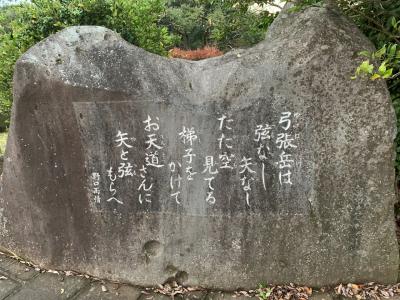 弓張岳は
弦なし
矢なし
たた空
見てる
梯子を
かけて
お天道
さんに
矢と弦
もらへ
野口雨情